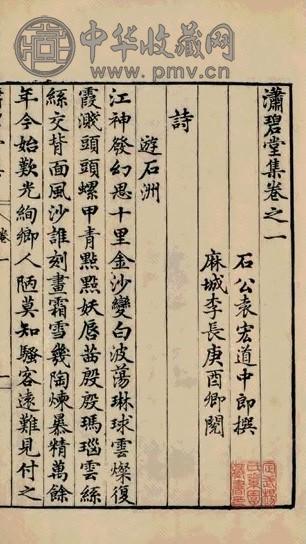 中华收藏网
www.pmv.cn
瀟碧堂集卷之一
石公袁宏道中郎撰
麻城李長庚酉卿閱
詩
遊石洲
江神發幻思十里金沙變白波蕩琳球雲燦復
霞濺頭頭螺甲青點點妖唇茜殷殷瑪瑙雲絲
絲交背面風沙誰刻畫霜雪幾陶煉暴精萬餘
年今始歎光絢鄉人陋莫知騷客遠難見付之